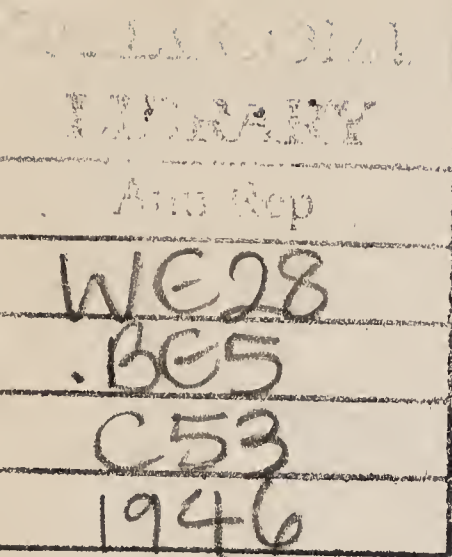 LIBRARY
Ann Rep
WE28
.BE5
C53
1946